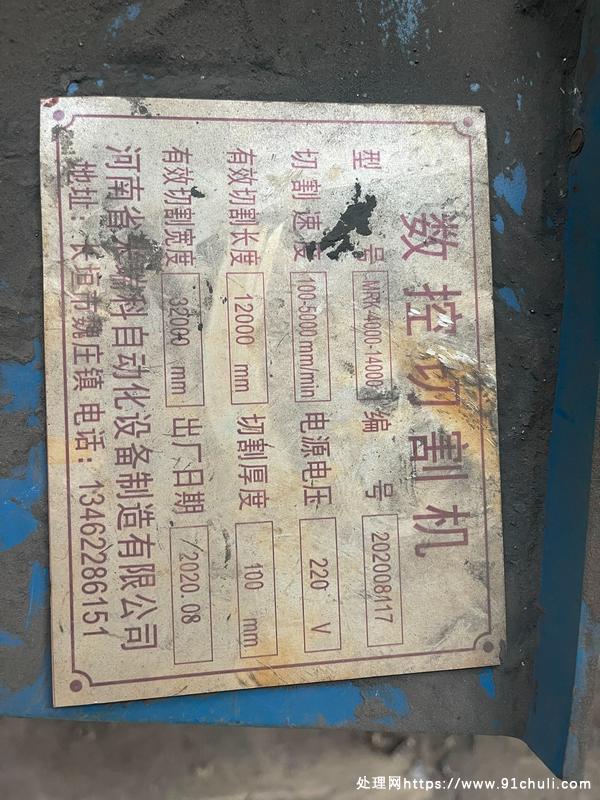 数控切割机
型号 MRK-4000-14000 编号 202008117
切割速度 100-5000 mm/min 电源电压 220 V
有效切割长度 12000 mm 切割厚度 100 mm
有效切割宽度 3200 mm 出厂日期 2020.08
河南省 瑞科自动化设备制造有限公司
地址：长垣市魏庄镇 电话：13462286151
处理网https://www.91chuli.com